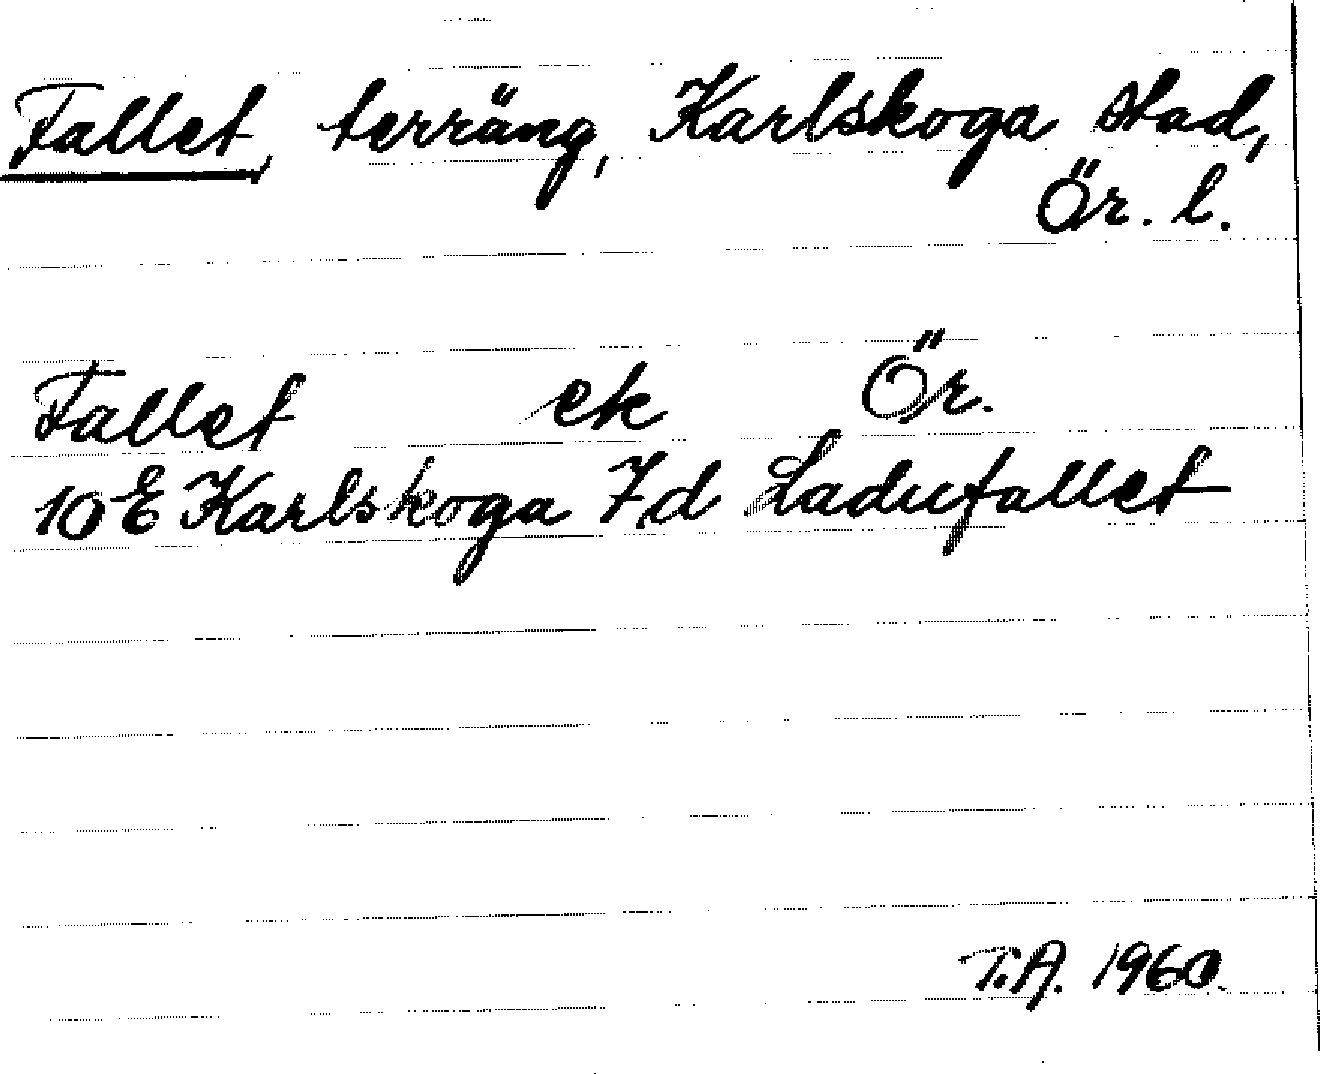 Fallet, terräng, Karlskoga stad,
Ör. l.
Fallet ek Ör.
10 E Karlskoga 7d Ladufallet
T.A. 1960.